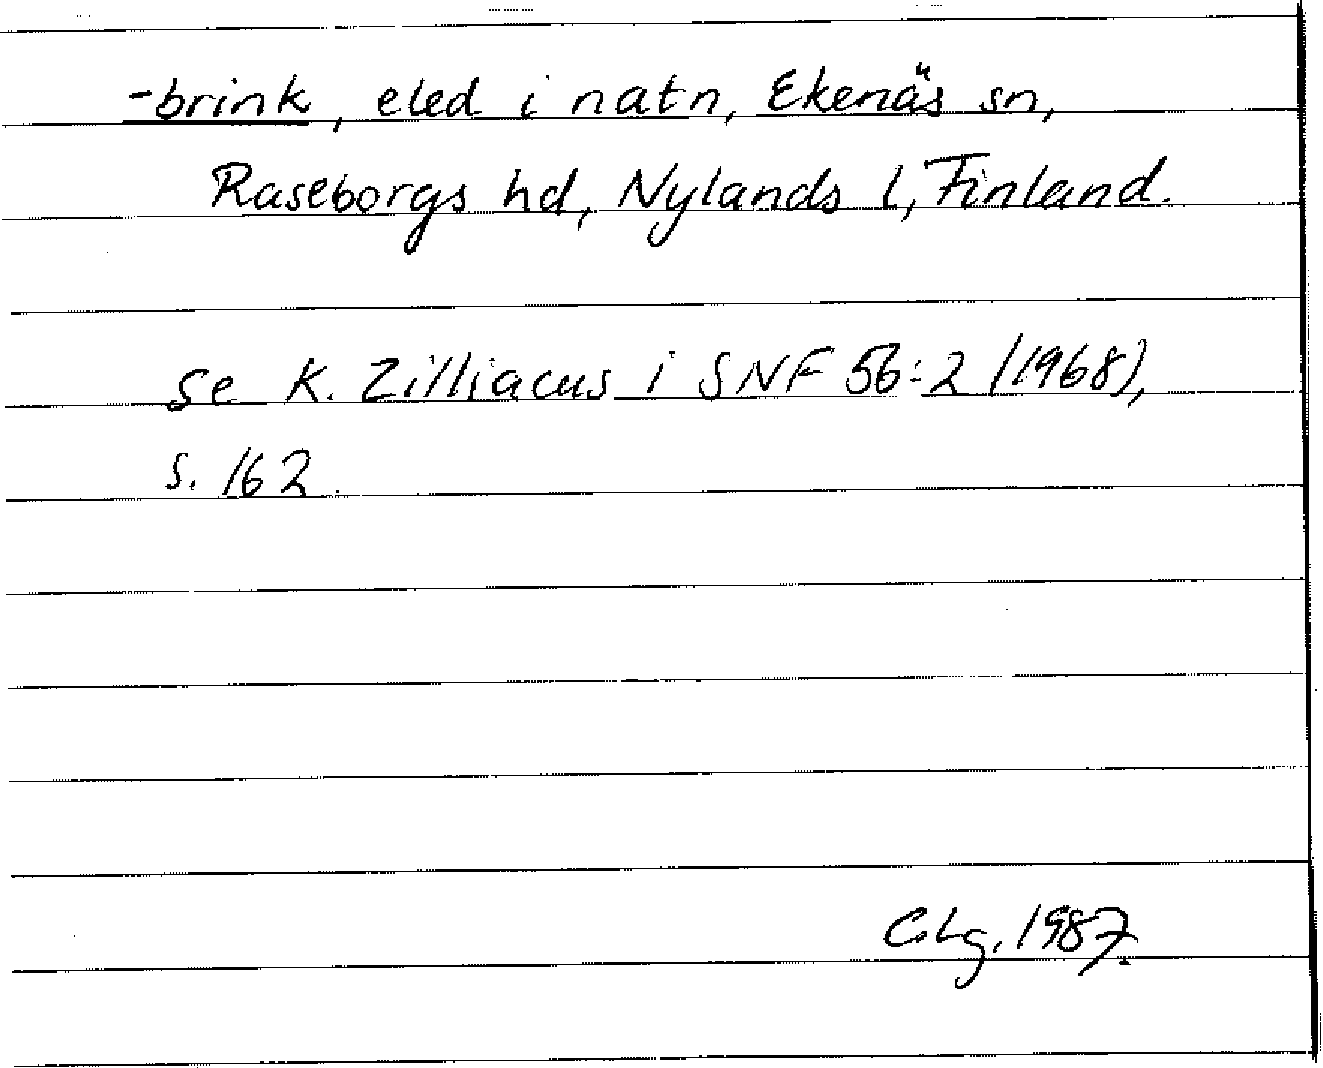 -brink, eled i natn, Ekenäs sn,
Raseborgs hd, Nylands l, Finland.
se K. Zilliacus i SNF 56:2 (1968),
s. 162.
CLg. 1987.